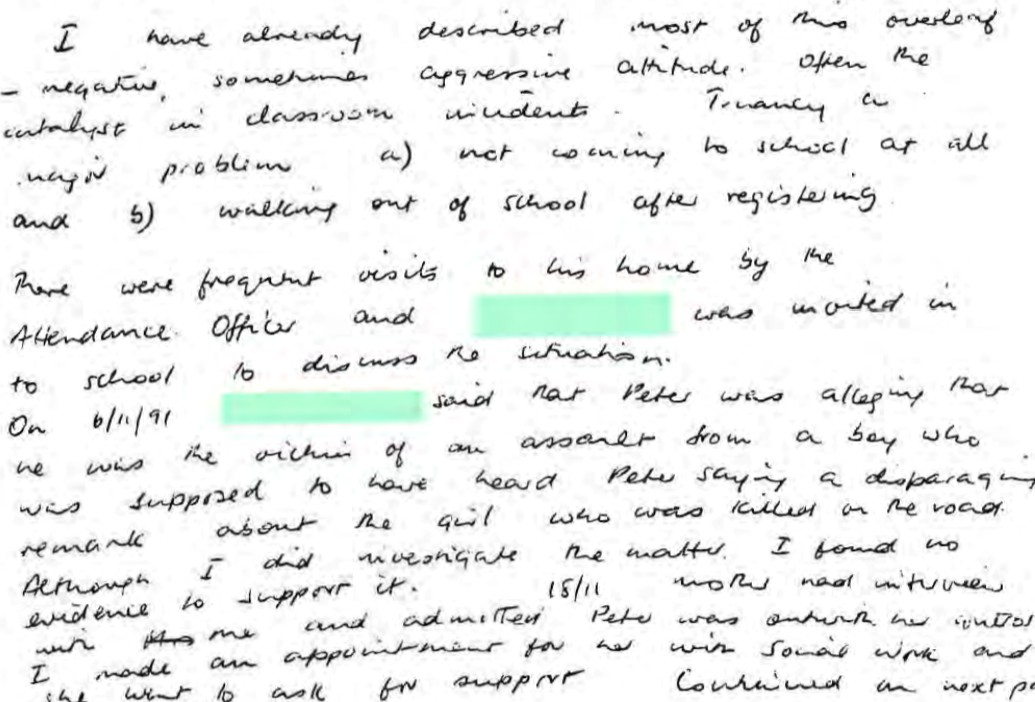 I have already described most of this overleaf
- negative, sometimes aggressive attitude. Often the
catalyst in classroom incidents. Truancy a
major problem a) not coming to school at all
and b) walking out of school after registering.
There were frequent visits to his home by the
Attendance Officer and was invited in
to school to discuss the situation.
On 6/11/91 said that Peter was alleging that
he was the victim of an assault from a boy who
was supposed to have heard Peter saying a disparaging
remark about the girl who was killed on the road.
Although I did investigate the matter. I found no
evidence to support it. 18/11 mother had interview
with me and admitted Peter was outwith her control
I made an appointment for her with Social Work and
she went to ask for support Continued on next